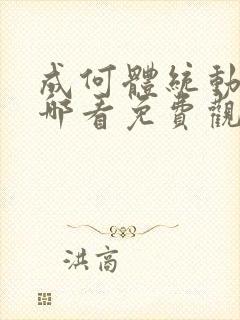 成何體統動
哪看免費觀
洪高